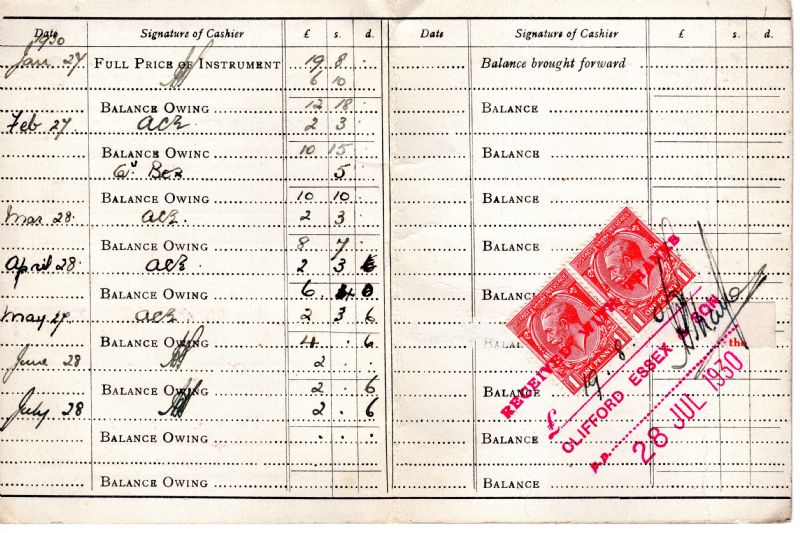 Date Signature of Cashier £ s. d.
1930
Jan. 27 FULL PRICE OF INSTRUMENT 19 8 .
6 10
BALANCE OWING 12 18 .
Feb 27. ACR 2 3 .
BALANCE OWING 10 15 .
5
BALANCE OWING 10 10 .
Mar. 28. ACR 2 3 .
BALANCE OWING 8 7 .
April 28. ACR 2 3 6
BALANCE OWING 6 4 0
May. 27. ACR 2 3 6
BALANCE OWING 4 . 6
June 28 2 .
BALANCE OWING 2 . 6
July. 28 2 . 6
BALANCE OWING . . .
BALANCE OWING
Date Signature of Cashier £ s. d.
Balance brought forward
BALANCE
BALANCE
BALANCE
BALANCE
BALANCE
BALANCE
BALANCE
BALANCE
the
RECEIVED WITH THANKS
£ 19. 8.
CLIFFORD ESSEX & SON
p.p.
28 JUL 1930